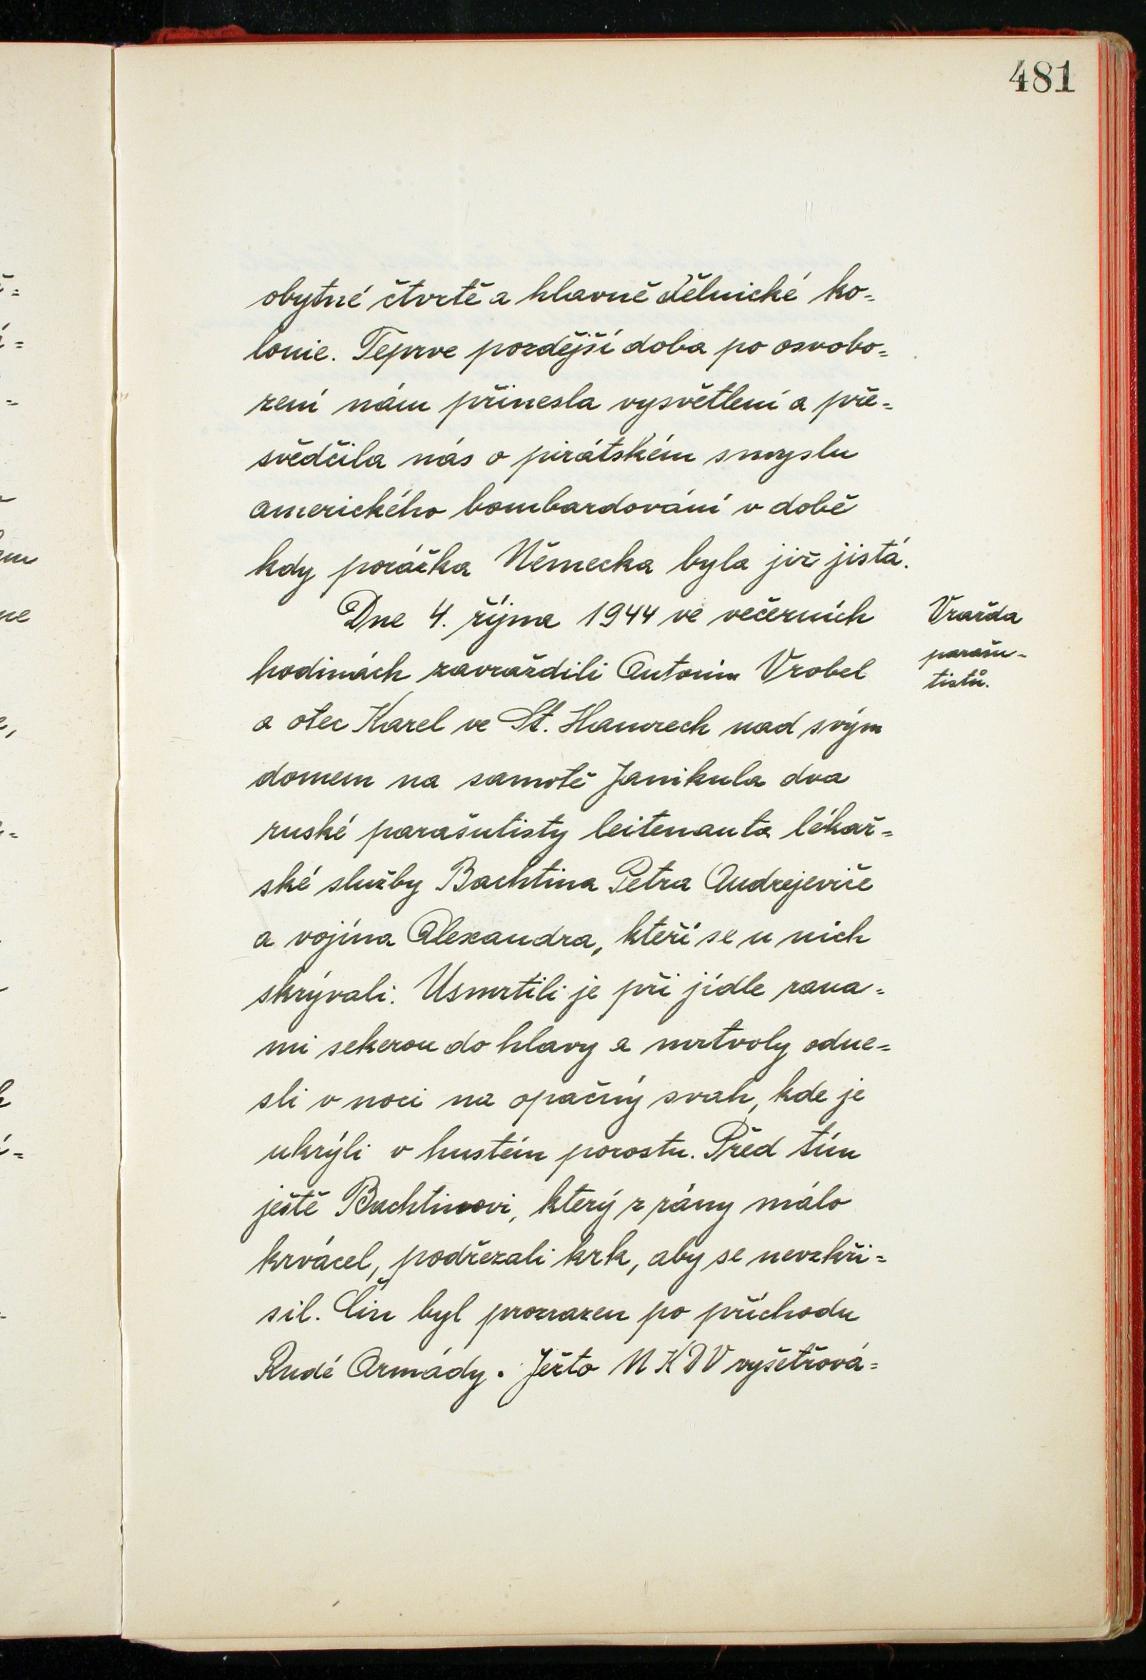 481
obytné čtvrtě a hlavně dělnické ko=
lonie. Teprve pozdější doba po osvobo=
zení nám přinesla vysvětlení a pře=
svědčila nás o pirátském smyslu
amerického bombardování v době
kdy porážka Německa byla již jistá.
Dne 4. října 1944 ve večerních
hodinách zavraždili Antonín Vrobel
a otec Karel ve St. Hamrech nad svým
domem na samotě Janikula dva
ruské parašutisty leitenanta lékař=
ské služby Bachtina Petra Andrejeviče
a vojína Alexandra, kteří se u nich
skrývali. Usmrtili je při jídle rana=
mi sekerou do hlavy a mrtvoly odne=
sli v noci na opačný svah, kde je
ukrýli v hustém porostu. Před tím
ještě Bachtinovi, který z rány málo
krvácel, podřezali krk, aby se nevzkří=
sil. Čin byl prozrazen po příchodu
Rudé Armády. Ježto NKDV vyšetřová=
Vražda
parašu-
tistů.